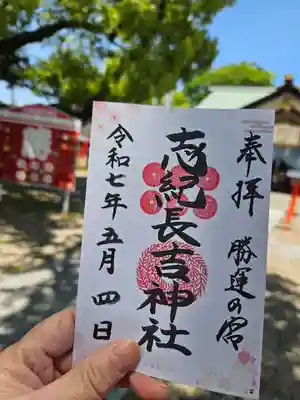 奉拝 勝運の宮
志紀長吉神社
令和七年五月四日